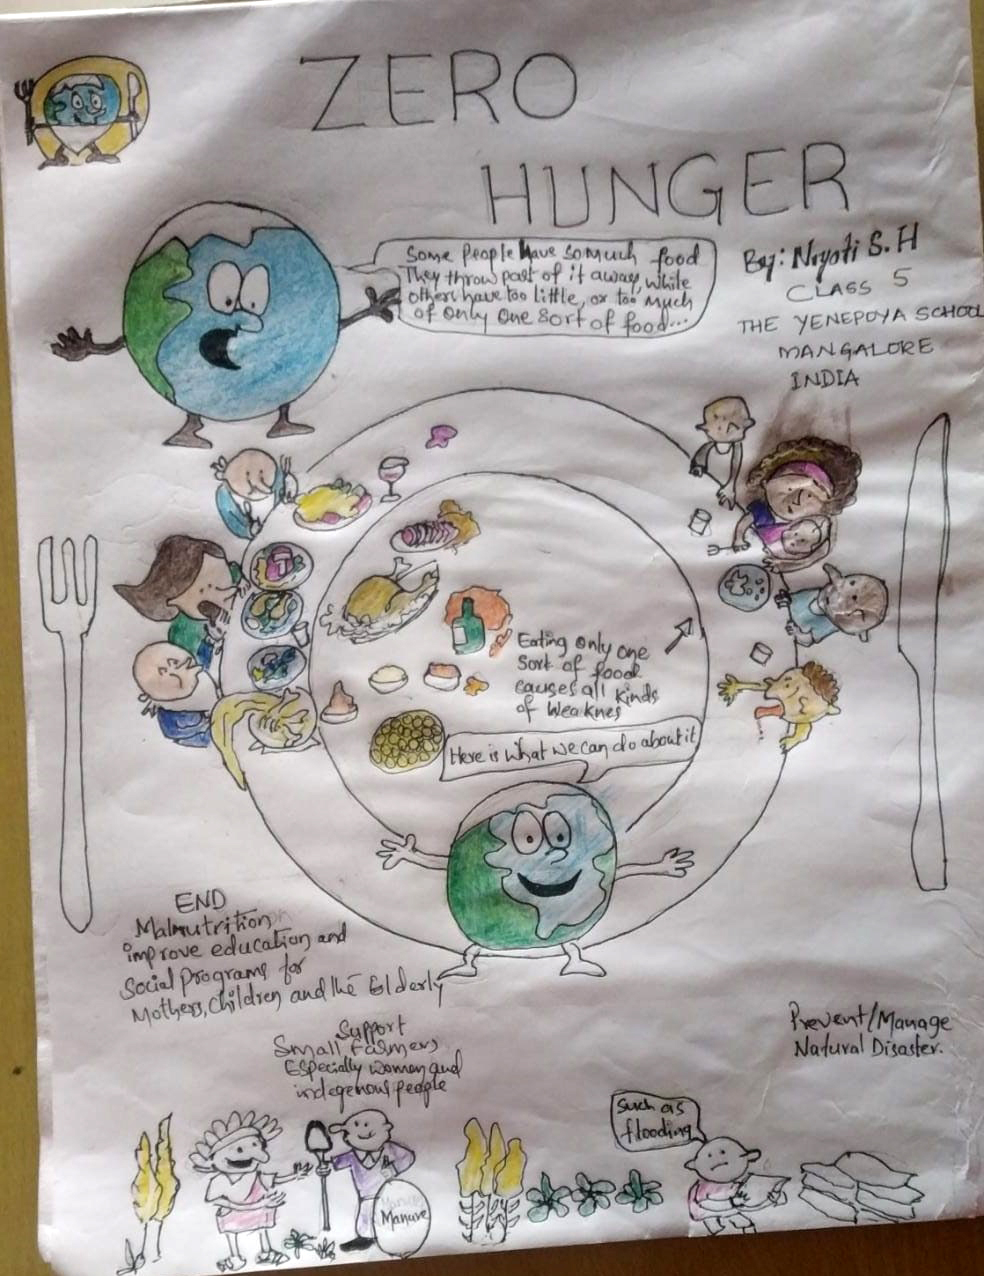 ZERO
HUNGER
Some People have so much food
They throw part of it away, while
others have too little, or too much
of only one sort of food...
By: Niyoti S.H
CLASS 5
THE YENEPOYA SCHOOL
MANGALORE
INDIA
Eating only one
sort of food
causes all kinds
of weaknes
Here is what we can do about it
END
Malnutrition
improve education and
Social Programs for
Mothers, Children and the Elderly
Support
Small Farmers
Especially women and
indegenous people
Prevent/Manage
Natural Disaster.
Such as
flooding
Manure